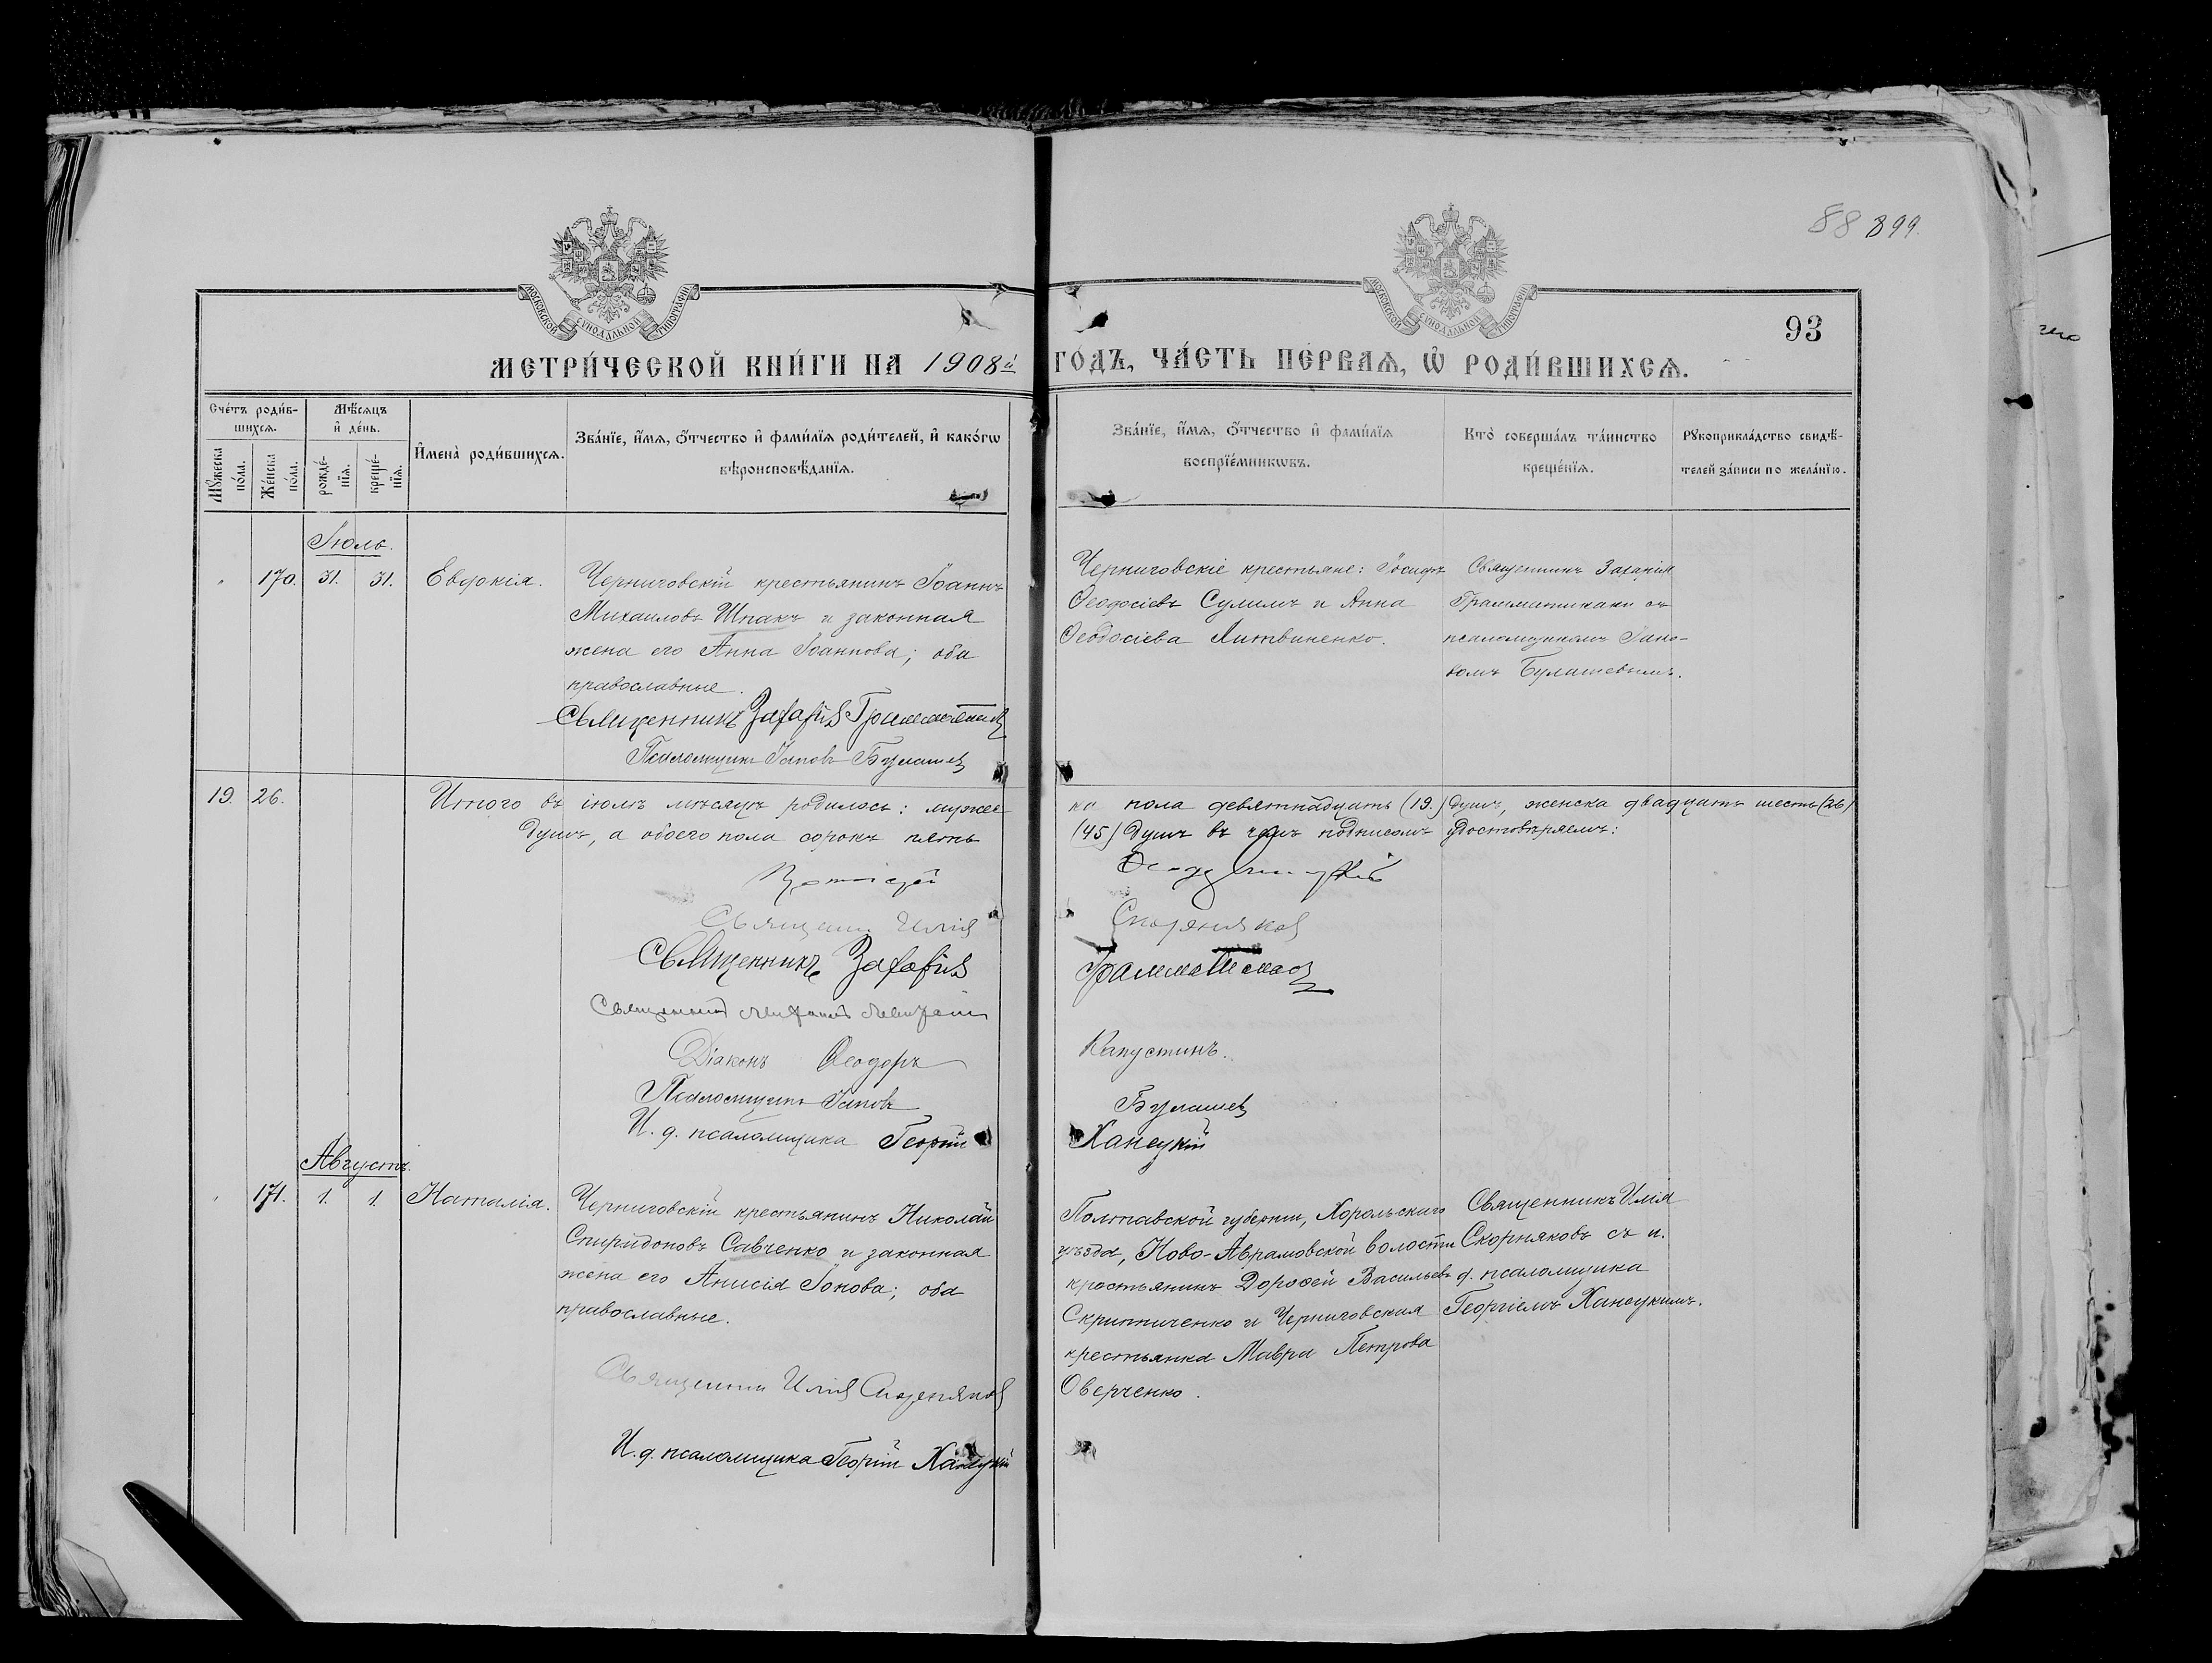 88 899.
93
МОСКОВСКОЙ СѴНОДАЛЬНОЙ ТИПОГРАФІИ
МОСКОВСКОЙ СѴНОДАЛЬНОЙ ТИПОГРАФІИ
МЕТРИ́ЧЕСКОЙ КНИ́ГИ НА 1908й ГО́ДЪ, ЧА́СТЬ ПЕ́РВАѦ, Ѿ РОДИ́ВШИХСѦ.
Сче́тъ роди́в-
шихсѧ.
Мꙋ́жеска по́ла.
Же́нска по́ла.
Мѣ́сѧцъ
и҆ де́нь.
рожде́-
нїѧ.
креще́-
нїѧ.
И҆мена̀ роди́вшихсѧ.
Зва́нїе, и҆́мѧ, ѻ҆́тчество и҆ фами́лїѧ роди́телей, и҆ како́гѡ
вѣроисповѣ́данїѧ.
Зва́нїе, и҆́мѧ, ѻ҆́тчество и҆ фами́лїѧ
воспрїе́мникѡвъ.
Кто̀ соверша́лъ та́инство
креще́нїѧ.
Рꙋкоприкла́дство свидѣ́-
телей за́писи по жела́нїю.
Іюль.
" 170. 31. 31. Евдокія.
Черниговскій крестьянинъ Іоаннъ
Михаиловъ Шпакъ и законная
жена его Анна Іоаннова; оба
православные.
Священникъ Захарія
Псаломщикъ Іаковъ Булашев
Черниговскіе крестьяне: Іосифъ
Ѳеодосіевъ Сулимъ и Анна
Ѳеодосіева Литвиненко.
Священникъ Захарія
съ
псаломщикомъ Іако-
вомъ Булашевымъ.
19. 26. Итого въ іюлѣ мѣсяцѣ родилось: мужес
ка пола девятнадцать (19.) душъ, женска двадцать шесть (26)
душъ, а обоего пола сорокъ пять
(45) душъ въ чемъ подписомъ удостовѣряемъ:
Протоіерей
Священникъ Илія Скорняков
Священникъ Захарія
Священникъ
Діаконъ Ѳеодоръ Капустинъ.
Псаломщикъ Іаковъ Булашев
И. д. псаломщика Георгій Ханецкій
Августъ.
" 171. 1. 1. Наталія.
Черниговскій крестьянинъ Николай
Спиридоновъ Савченко и законная
жена его Анисія Іонова; оба
православные.
Священникъ Илія Скорняков
И. д. псаломщика Георгій Ханецкій
Полтавской губерніи, Хорольскаго
уѣзда, Ново-Аврамовской волости
крестьянинъ Дорофей Васильевъ
Скрипниченко и Черниговская
крестьянка Мавра Петрова
Оверченко.
Священникъ Илія
Скорняковъ съ и.
д. псаломщика
Георгіемъ Ханецкимъ.